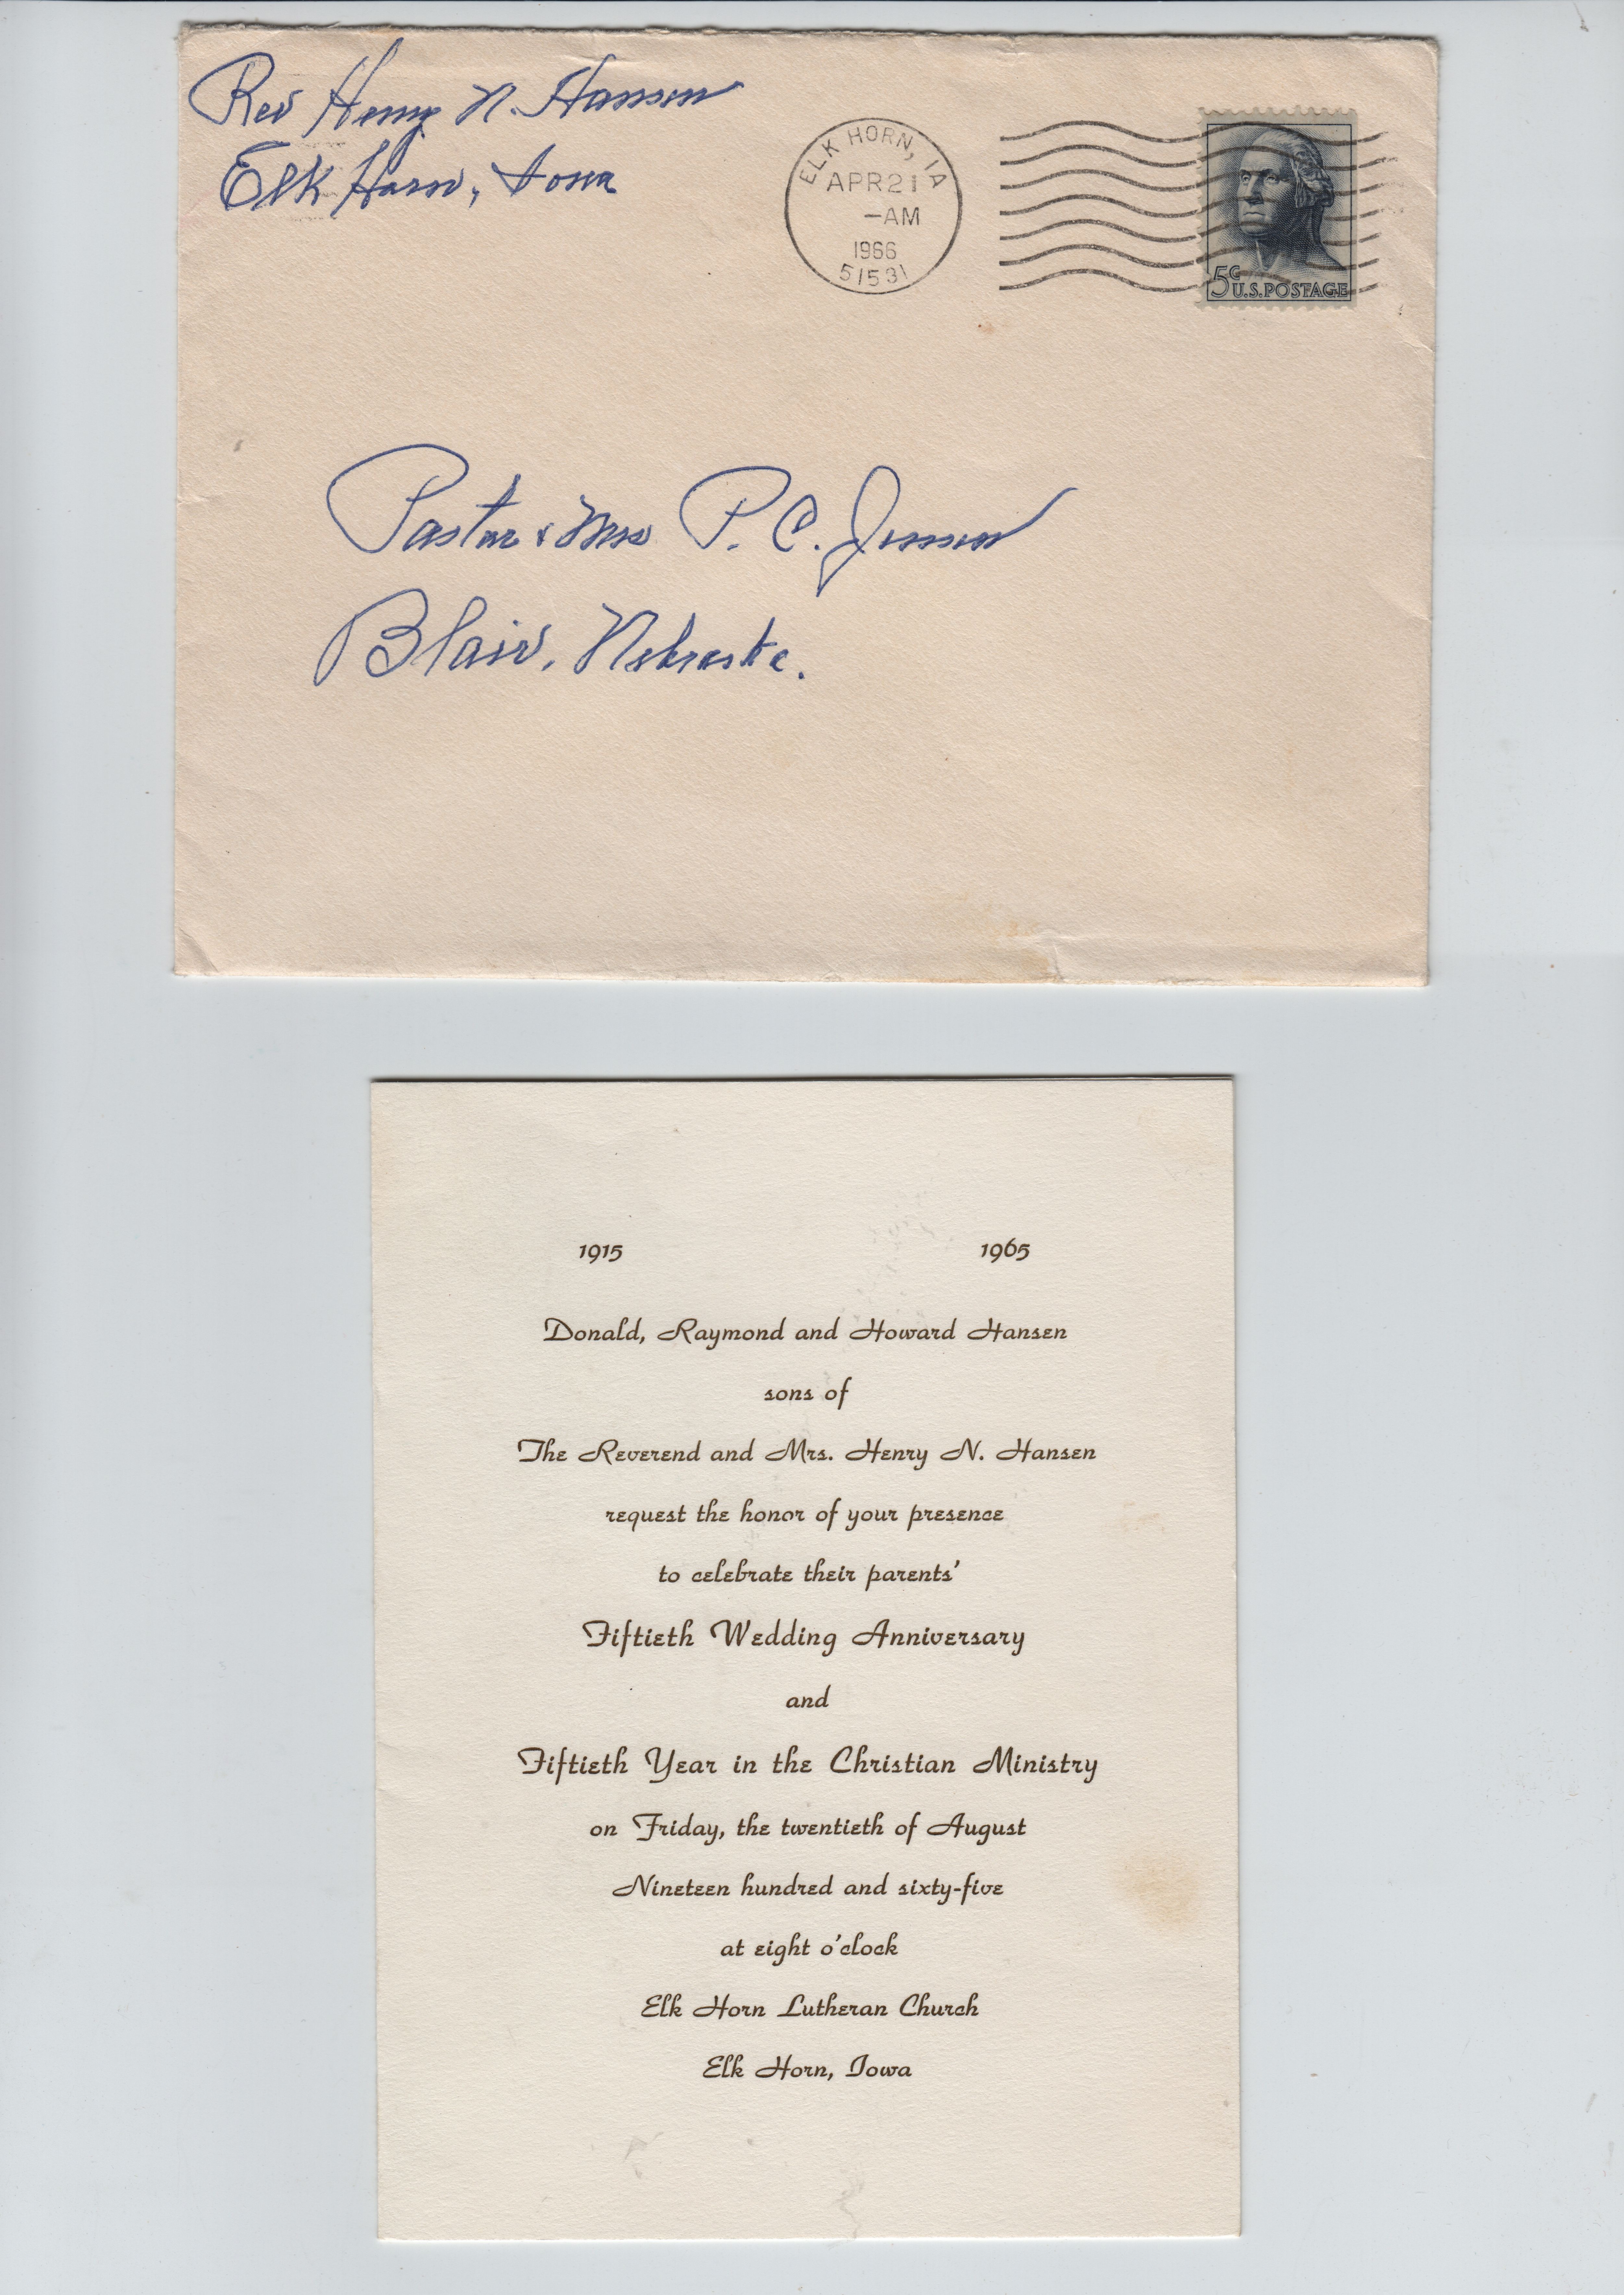 Rev Henry N. Hansen
Elk Horn, Iowa
ELK HORN, IA
APR 21
-AM
1966
51531
5c
U.S. POSTAGE
Pastor & Mrs P. C. Jensen
Blair, Nebraska.
1915 1965
Donald, Raymond and Howard Hansen
sons of
The Reverend and Mrs. Henry N. Hansen
request the honor of your presence
to celebrate their parents'
Fiftieth Wedding Anniversary
and
Fiftieth Year in the Christian Ministry
on Friday, the twentieth of August
Nineteen hundred and sixty-five
at eight o'clock
Elk Horn Lutheran Church
Elk Horn, Iowa